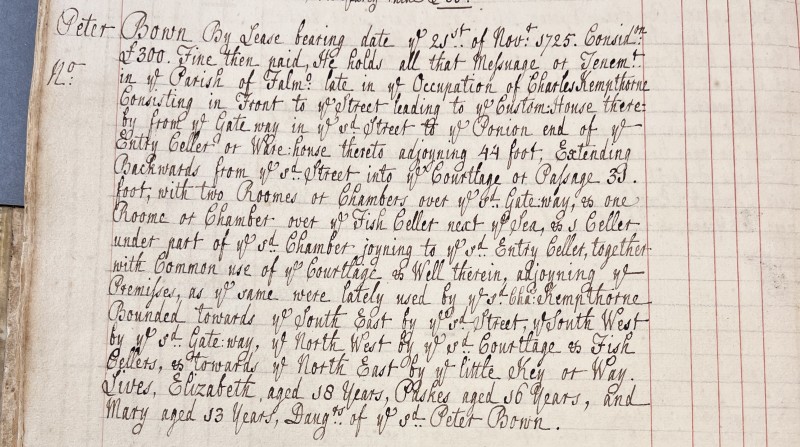 Peter Bown By Lease bearing date yᵉ 21ˢᵗ of Novʳ 1725. Considᵒⁿ
£300. Fine then paid, He holds all that Messuage or Tenemᵗ
Nᵒ
in yᵉ Parish of Falmᵒ late in yᵉ Occupation of Charles Kempthorne
Consisting in Front to yᵉ Street leading to yᵉ Custom:House there:
by from yᵉ Gate way in yᵉ sᵈ Street to yᵉ Ponion end of yᵉ
Entry Celler or Ware:house thereto adjoyning 44 foot; Extending
Backwards from yᵉ sᵈ Street into yᵉ Courtlage or Passage 33.
foot, with two Roomes or Chambers over yᵉ sᵈ Gate:way, & one
Roome or Chamber over yᵉ Fish Celler next yᵉ Sea, & 1 Celler
under part of yᵉ sᵈ Chamber joyning to yᵉ sᵈ Entry Celler, together
with Common use of yᵉ Courtlage & Well therein, adjoyning yᵉ
Premisses, as yᵉ same were lately used by yᵉ sᵈ Cha: Kempthorne
Bounded towards yᵉ South East by yᵉ sᵈ Street, yᵉ South West
by yᵉ sᵈ Gate:way, yᵉ North West by yᵉ sᵈ Courtlage & Fish
Cellers, & towards yᵉ North East by yᵉ little Key or Way.
Lives, Elizabeth aged 18 Years, Paskes aged 16 Years, and
Mary aged 13 Years, Daugʳˢ of yᵉ sᵈ Peter Bown.